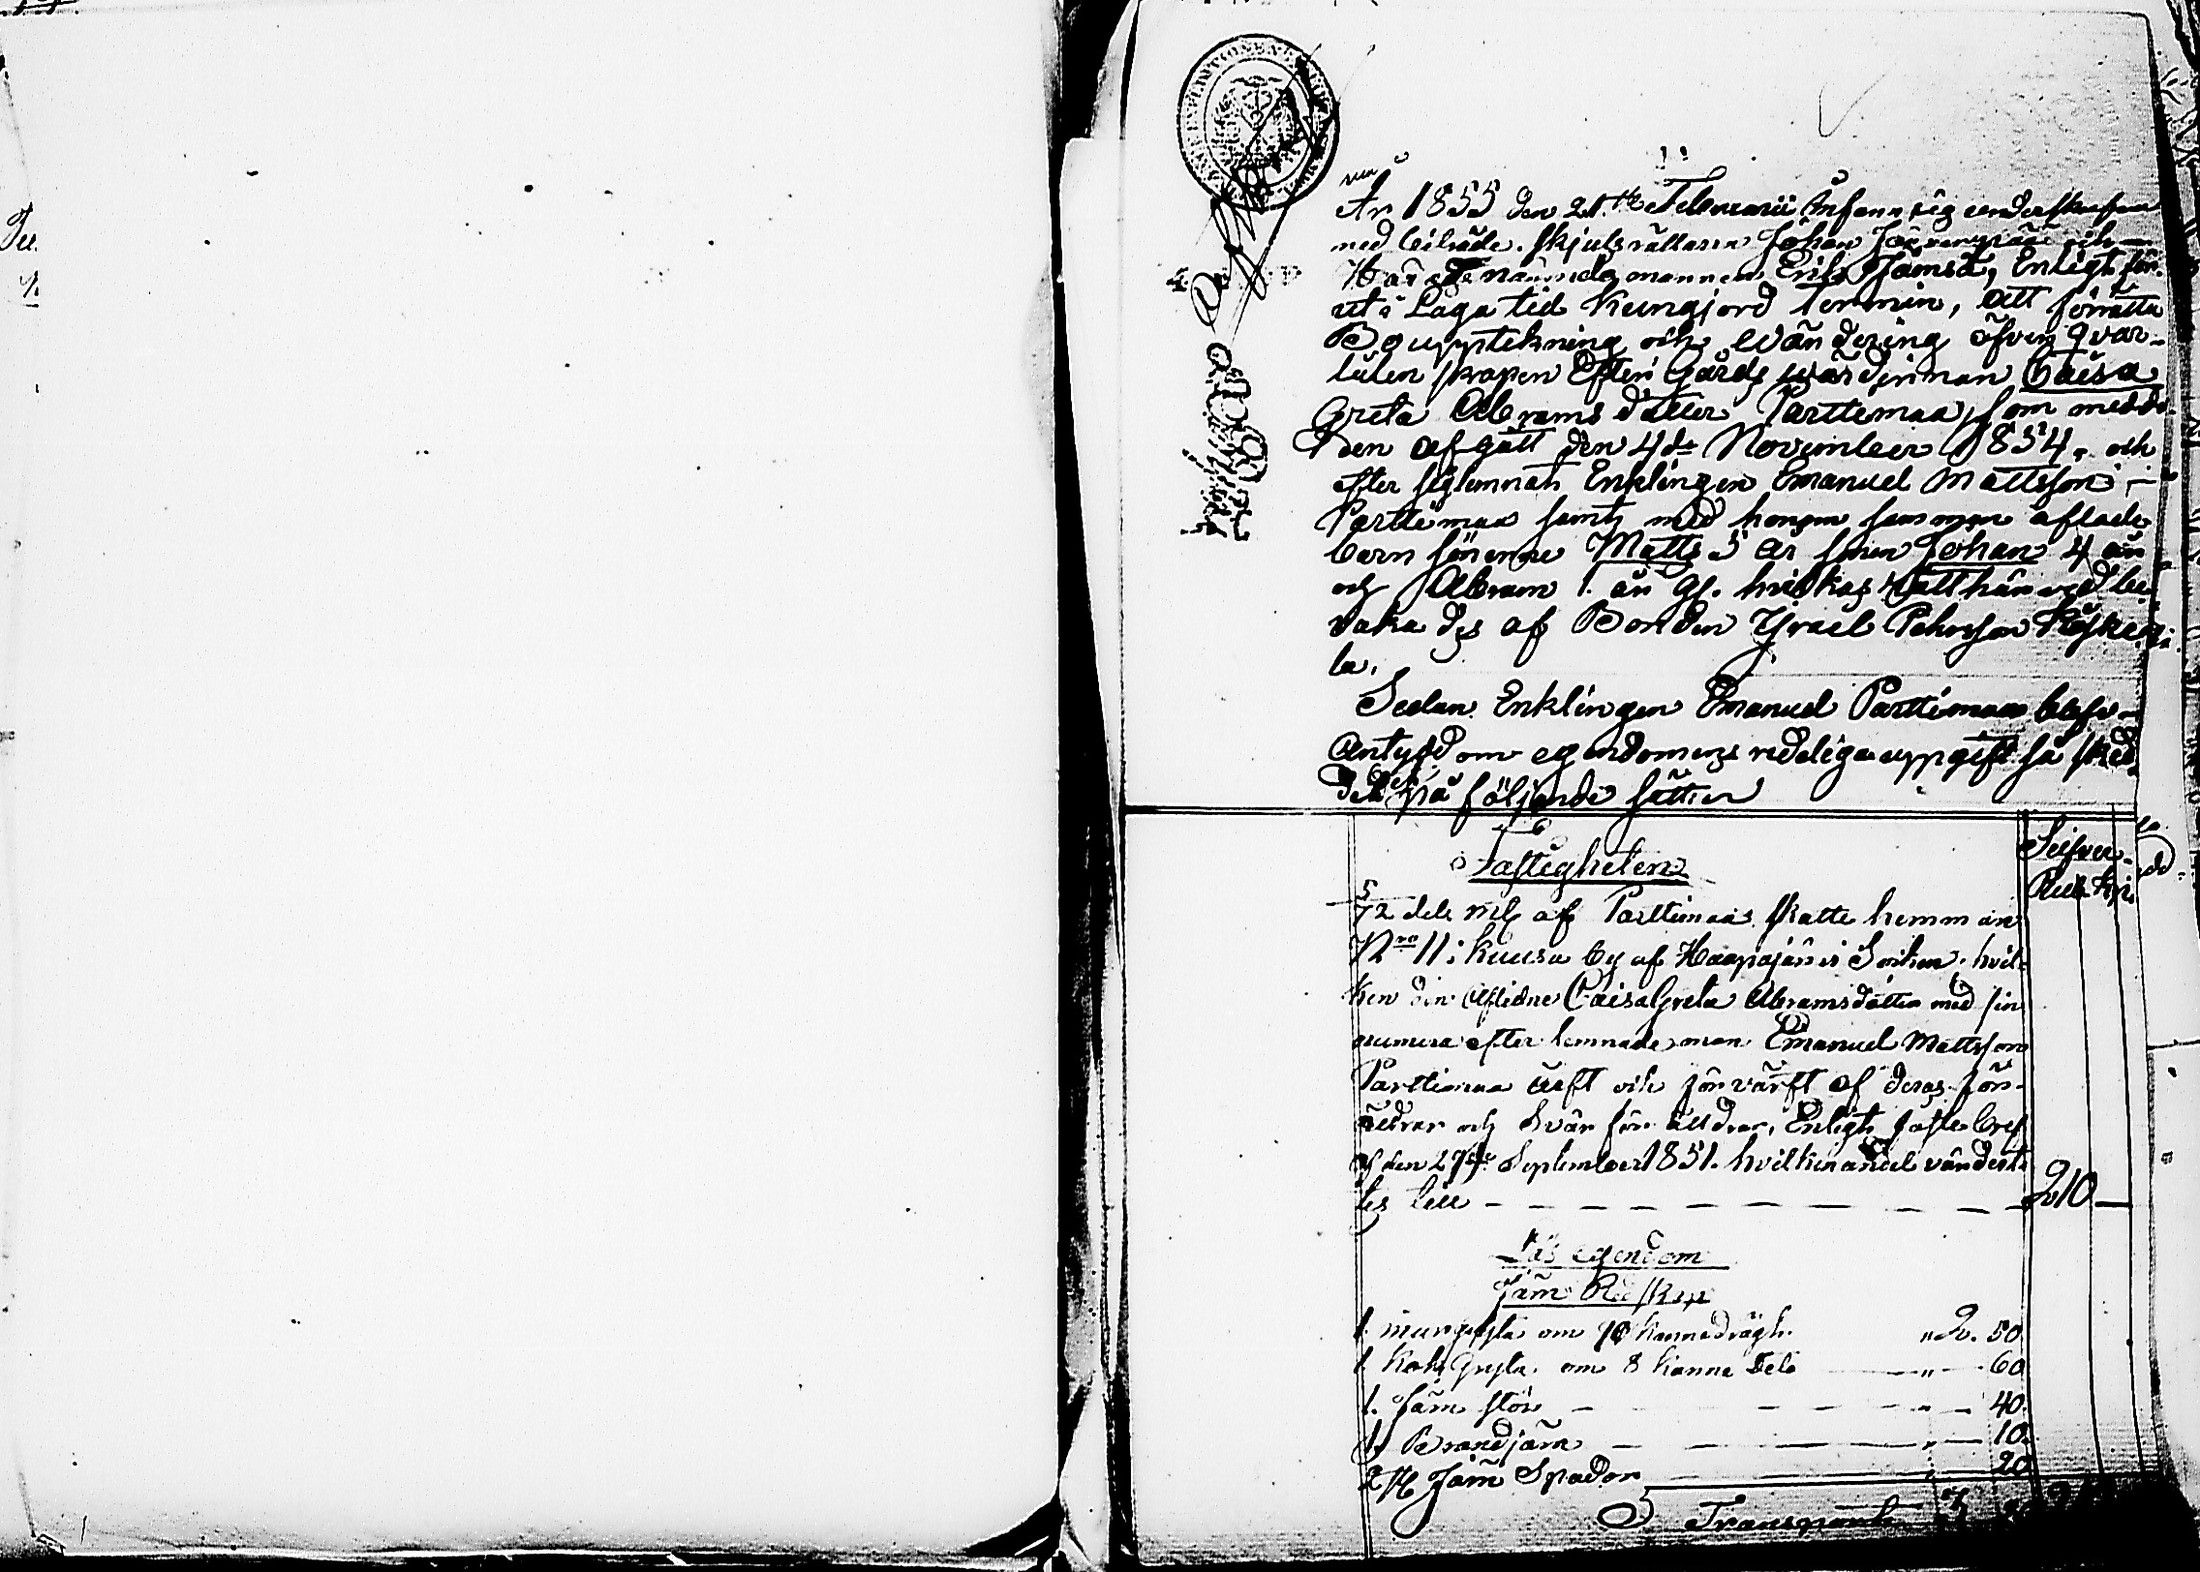 År 1855 den 21.te Februarii infann sig underskrefven
med biträde. skjutsrättaren Johan och
Härads nämndemannen Erik Jämsä, Enligt för-
ut i Laga tid kungjord termin, att förrätta
Bouppteckning och värdering öfver qvar-
låtenskapen Efter Gårds värdinnan Caisa
Greta Abrams dotter Parttimaa, som med dö-
den afgått den 4de November 1854, och
efter sig lemnat Enklingen Emanuel Mattsson
Parttimaa samt med honom samman aflade
barn sönerne Matts 5 år Johan 4 år
och Abram 1. år gl. hvilkas rätt härved be-
vakades af Bonden Israel Pehrsson
la.
Sedan Enklingen Emanuel Parttimaa blifv-
antydd om egendomens redeliga uppgift så sked-
de det på följande sätt
Fastigheten
Silfver
Rub. Kop.
5/72 dels mtl af Parttimaa skatte hemman
Nro 11 i Kuusa by af Haapajärvi Socken. hvil-
ken den aflidne Caisa Greta Abramsdotter med sin
numera efterlemnade man Emanuel Mattsson
Parttimaa ärft och förvärft af deras för-
äldrar och Svärföräldrar, Enligt fastebref
af den 27de September 1851. hvilken andel värdera-
des till 210 —
Lös egendom
Järn Redskap
1. murgryta om 90 kannedrägt. " 2. 50
1 Kok Gryta om 8 kanne dito " 60
1. Järn stör " 40
1. Brandjärn " 10
2 st Järn Spador " 20
Transport 3